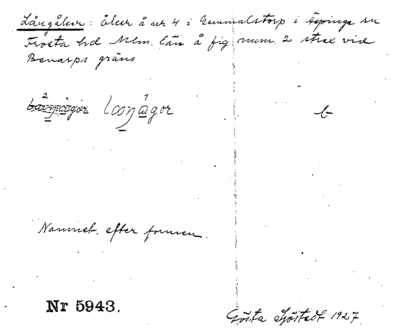 Långåkrar: åkrar å nr 4 i Gummalstorp i Äspinge sn
Frosta hd Mlm. län å fig num. 2 strax vid
Benarps gräns
b
Namnet efter formen.
Nr 5943.
Gösta Sjöstedt 1927.